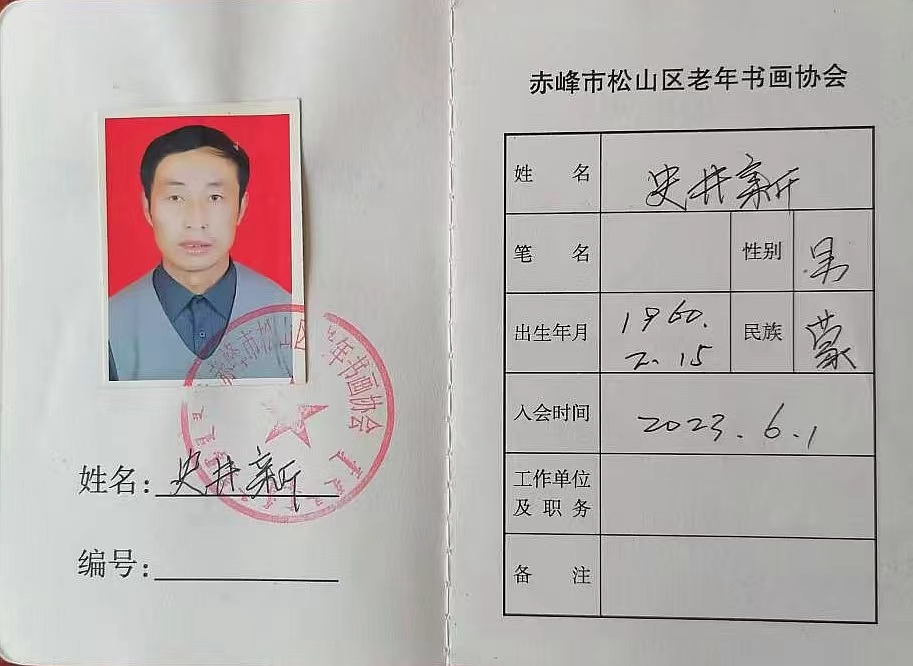 姓名：史井新
编号：
赤峰市松山区老年书画协会
姓 名 史井新
笔 名 性别 男
出生年月 1960.2.15 民族 蒙
入会时间 2023.6.1
工作单位
及职务
备 注
年书画协会